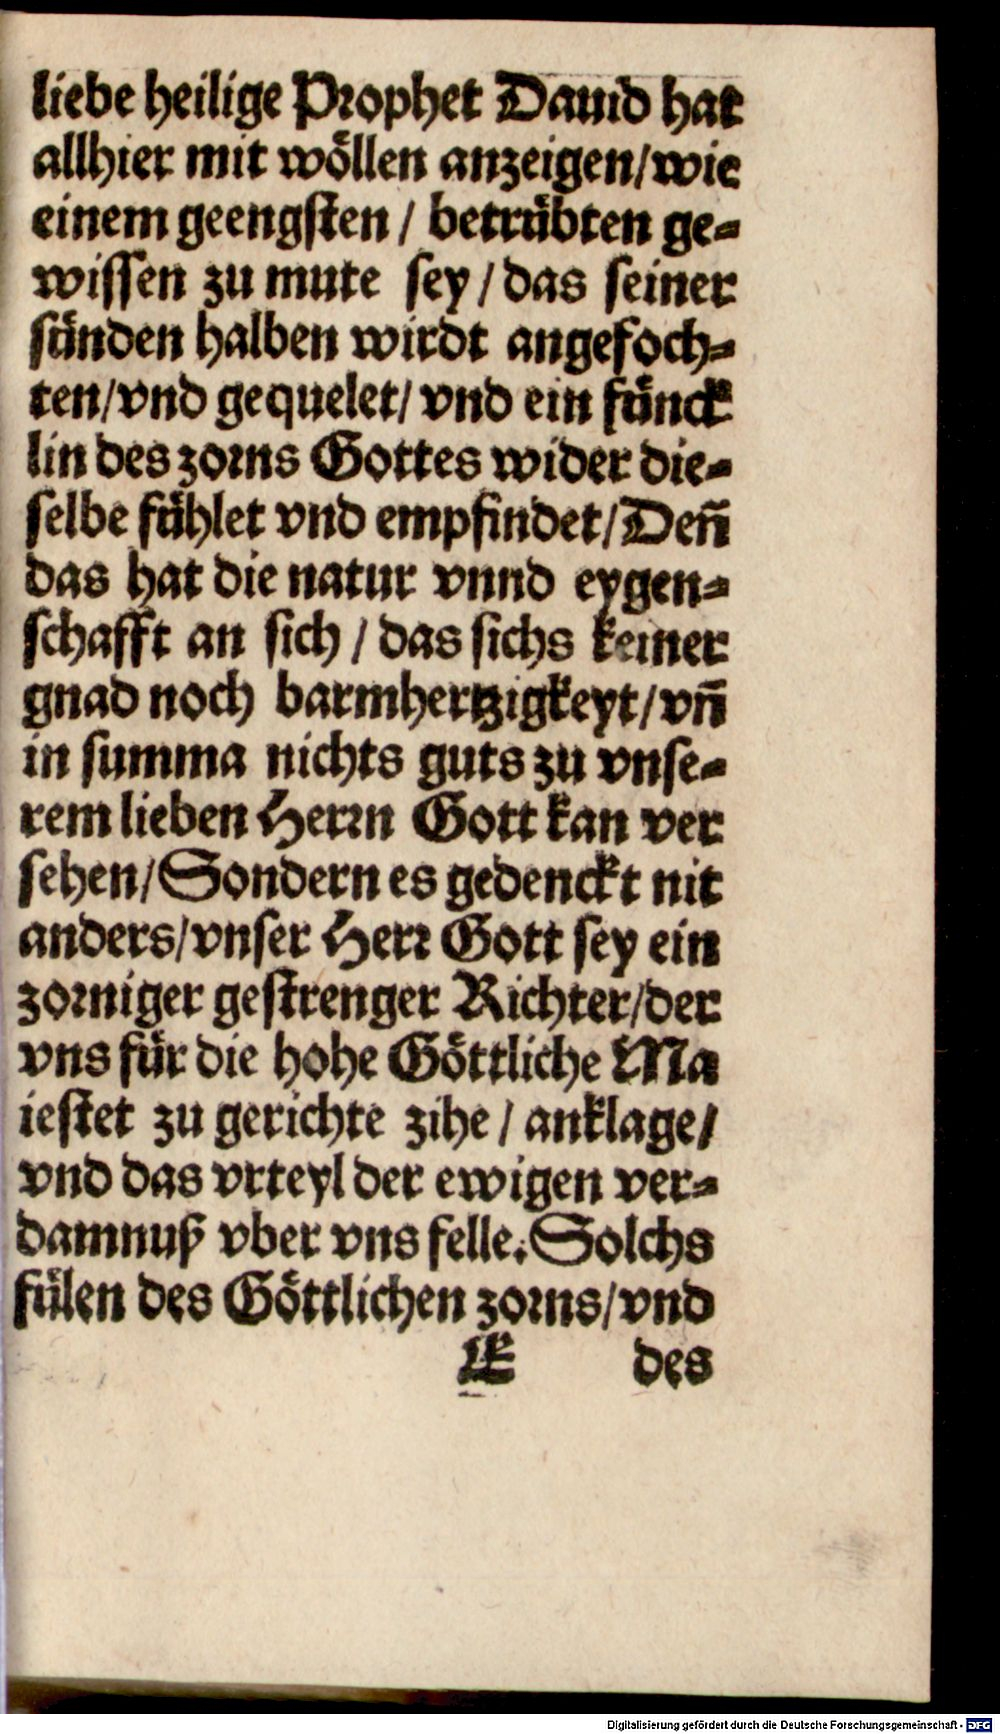 liebe heilige Prophet Dauid hat
allhier mit wöllen anzeigen/wie
einem geengsten / betrübten ge-
wissen zu mute sey / das seiner
sünden halben wirdt angefoch-
ten/vnd gequelet/ vnd ein fünck
lin des zorns Gottes wider die-
selbe fühlet vnd empfindet/Den̄
das hat die natur vnnd eygen-
schafft an sich / das sichs keiner
gnad noch barmhertzigkeyt/vn̄
in summa nichts guts zu vnse-
rem lieben Herrn Gott kan ver
sehen/Sondern es gedenckt nit
anders/vnser Herr Gott sey ein
zorniger gestrenger Richter/der
vns für die hohe Göttliche Ma
iestet zu gerichte zihe / anklage/
vnd das vrteyl der ewigen ver-
damnuß vber vns felle. Solchs
fülen des Göttlichen zorns/vnd
des
Digitalisierung gefördert durch die Deutsche Forschungsgemeinschaft - DFG